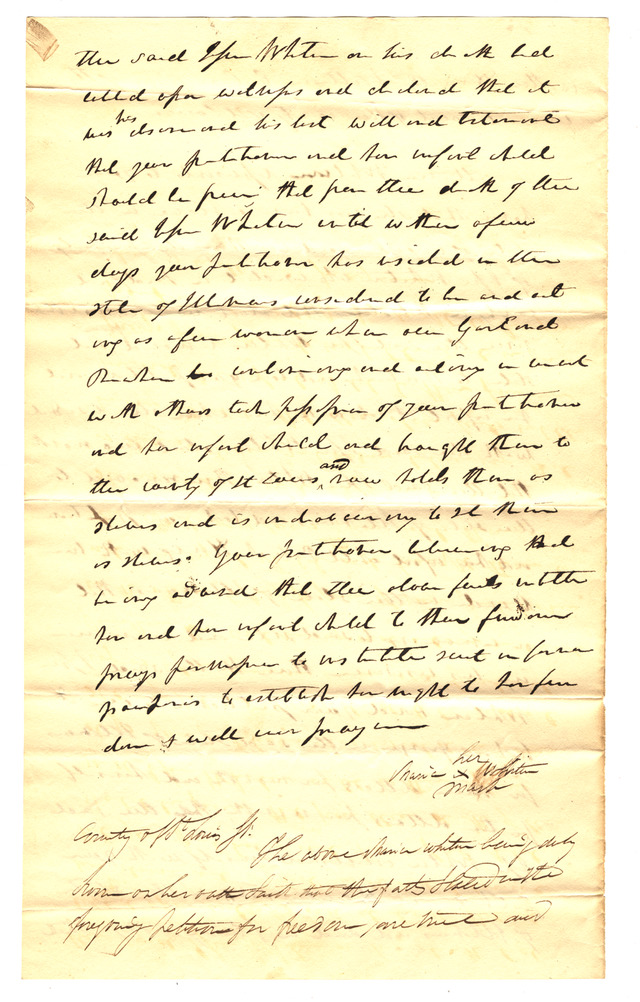 the said Ephm Whiten on his death bed
called upon witnesses and declared that it
was his desire and his last will and testament
that your petitioner and her infant child
should be free. that from the death of the
said Ephm Whiten until within a few
days your petitioner has resided in the
State of Illinois considered to be and act
ing as a free woman when one Garland
Rucker combining and acting in concert
with others took possession of your petitioner
and her infant child and brought them to
the county of St Louis and now holds them as
slaves and is endeavoring to sell them
as slaves. Your petitioner believing that
being advised that the above facts entitle
her and her infant child to their freedom
prays permission to institute suit in forma
pauperis to establish her right to her free
dom & will ever pray
Maria her X mark Whiten
County of St. Louis Sc.
The above Maria Whiten being duly
sworn on her oath saith that the facts stated in the
foregoing petition for freedom are true and